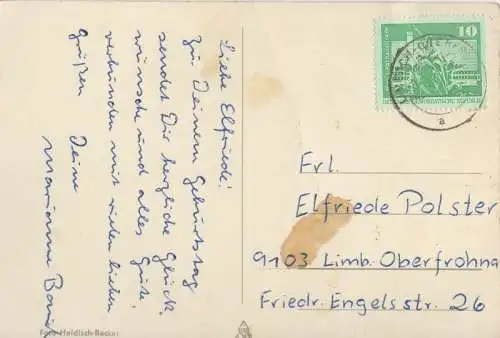 Liebe Elfriede!
Zu Deinem Geburtstag
sendet Dir herzliche Glück-
wünsche und alles Gute,
verbunden mit vielen lieben
Grüßen Deine
Marianne
Foto-Heldisch-Becker
10
Frl.
Elfriede Polster
9103 Limb. Oberfrohna
Friedr. Engelsstr. 26